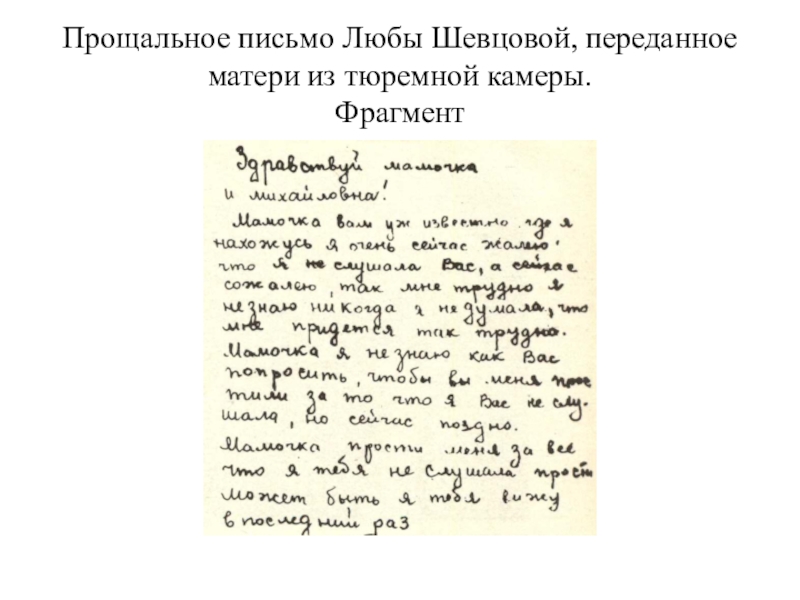 Прощальное письмо Любы Шевцовой, переданное
матери из тюремной камеры.
Фрагмент
Здравствуй мамочка
и михайловна!
Мамочка вам уж известно где я
нахожусь я очень сейчас жалею
что я не слушала Вас, а сейчас
сожалею, так мне трудно я
незнаю никогда я не думала, что
мне придется так трудно.
Мамочка я не знаю как Вас
попросить, чтобы вы меня прос
тили за то что я Вас не слу-
шала, но сейчас поздно.
Мамочка прости меня за все
что я тебя не слушала прости
может быть я тебя вижу
в последний раз